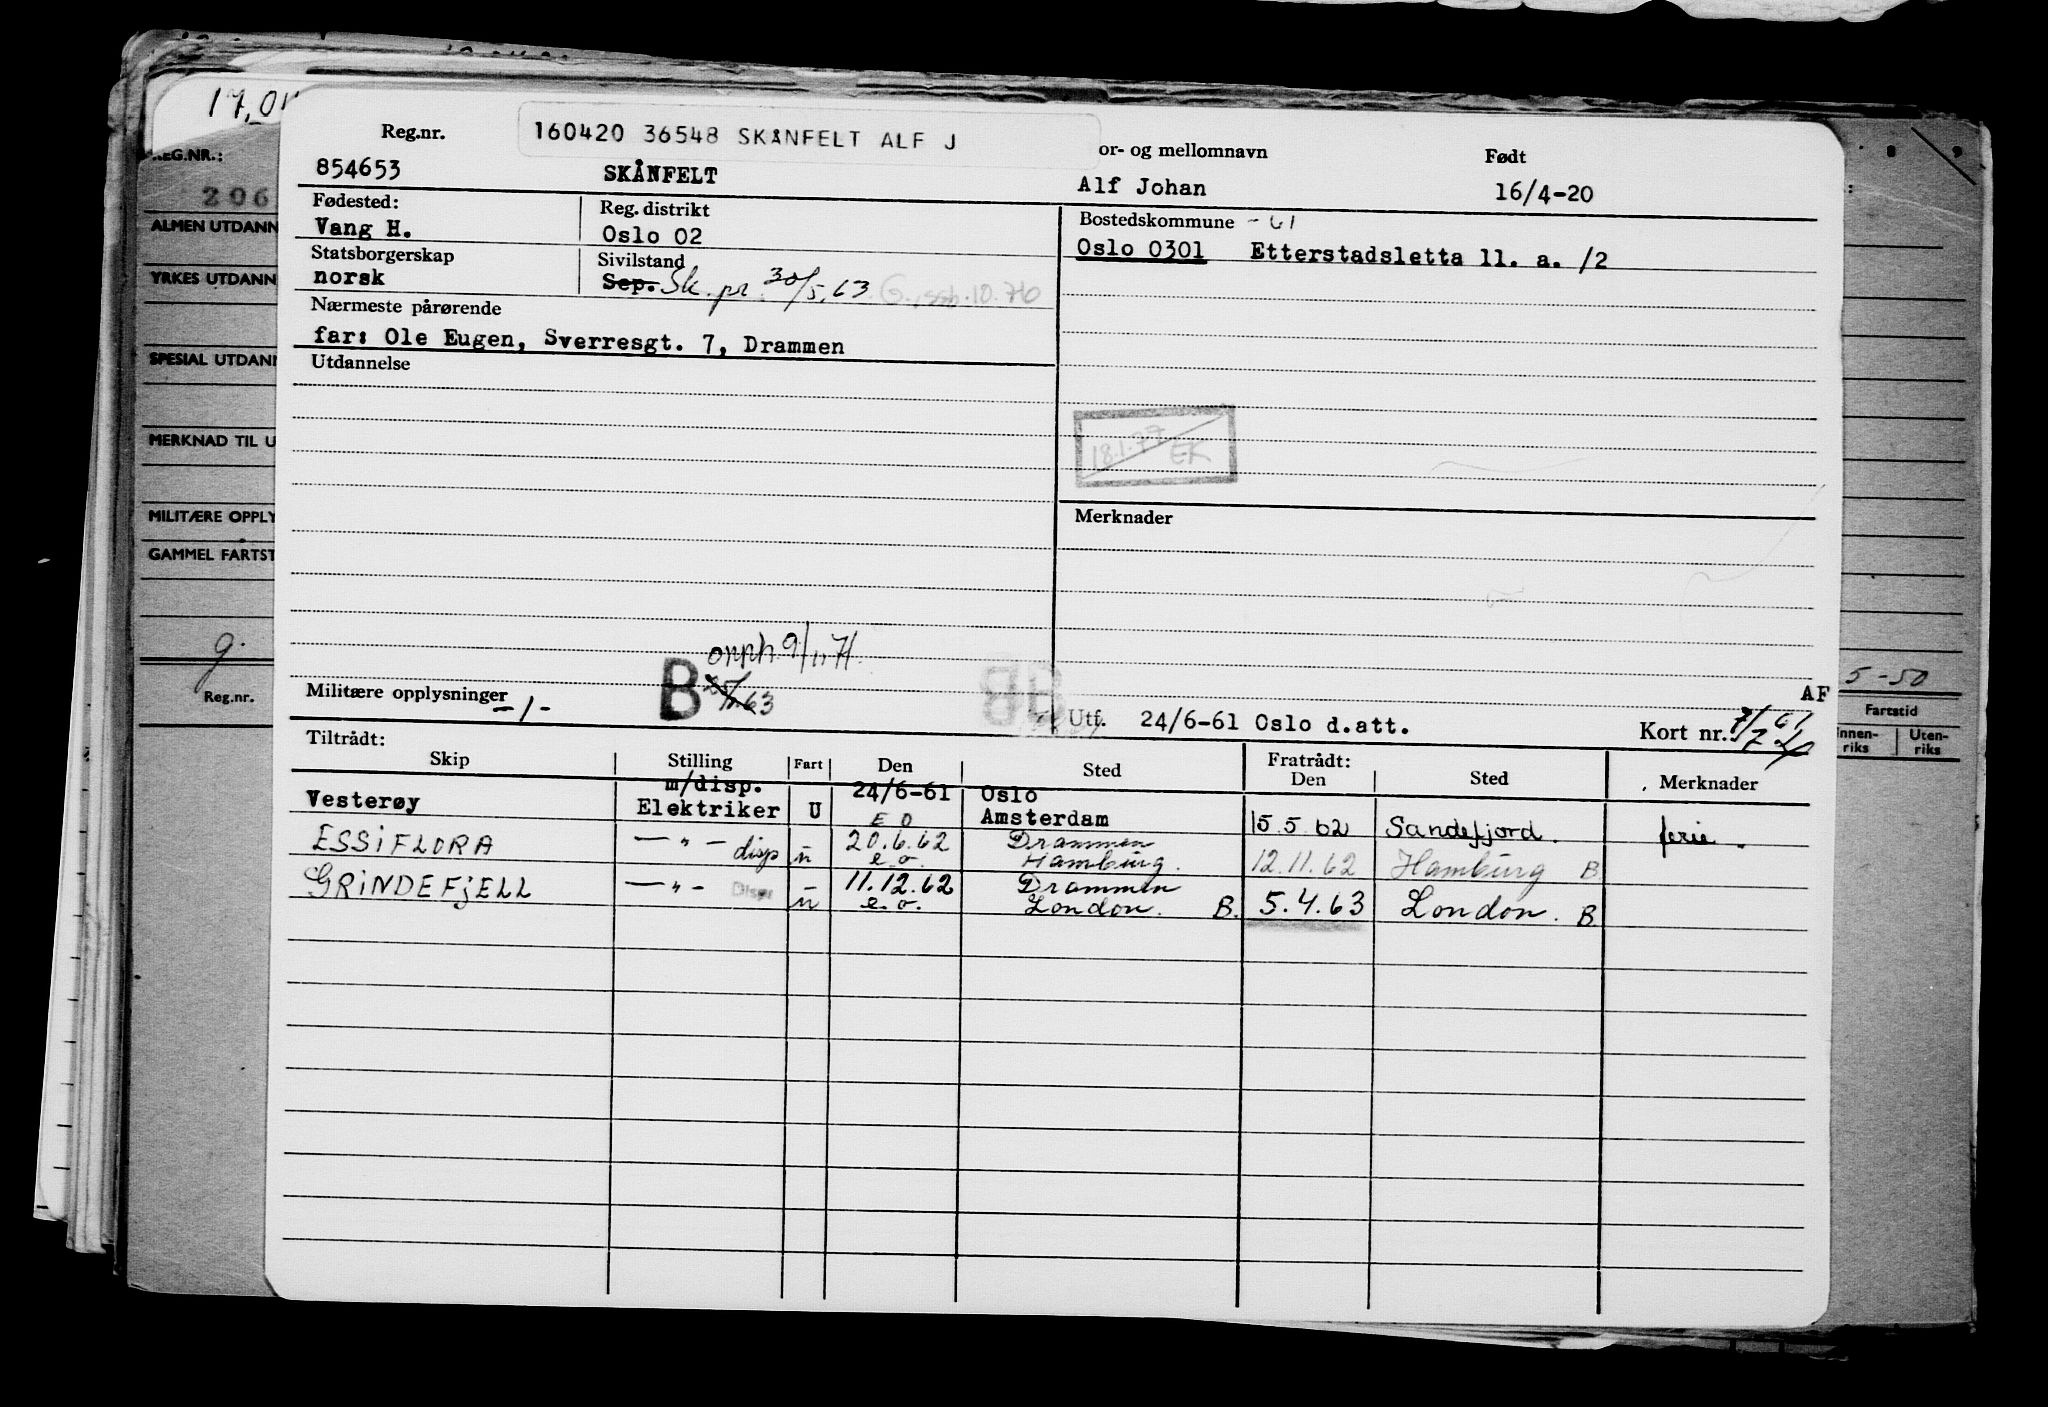 17.04
160420 36548 SKÅNFELT ALF J
Reg.nr. or- og mellomnavn Født
854653 SKÅNFELT Alf Johan 16/4-20
Fødested: Reg. distrikt Bostedskommune - 61
Vang H. Oslo 02 Oslo 0301 Etterstadsletta 11. a. /2
Statsborgerskap Sivilstand
norsk Sep. Sk. pr. 30/5.63 G. ssb. 10.76
Nærmeste pårørende
far: Ole Eugen, Sverresgt. 7, Drammen
Utdannelse
18.1.77 EK
Merknader
opph. 9/11 71.
B 63
BB
Militære opplysninger -1- AF
Utf. 24/6-61 Oslo d.att. Kort nr. 7/61
Tiltrådt: Fratrådt:
Skip Stilling Fart Den Sted Den Sted Merknader
m/disp. 24/6-61 Oslo
Vesterøy Elektriker U E O Amsterdam 15.5.62 Sandefjord. ferie.
ESSIFLORA — " — disp u 20.6.62 e.o. Drammen Hamburg. 12.11.62 Hamburg B.
GRINDEFJELL — " - Disp u 11.12.62 e.o. Drammen London. B. 5.4.63 London. B.
REG.NR.:
206
ALMEN UTDANN
YRKES UTDANN
SPESIAL UTDANN
MERKNAD TIL U
MILITÆRE OPPLY
GAMMEL FARTST
g.
Reg.nr.
5-50
Fartstid
Innen-riks Uten-riks